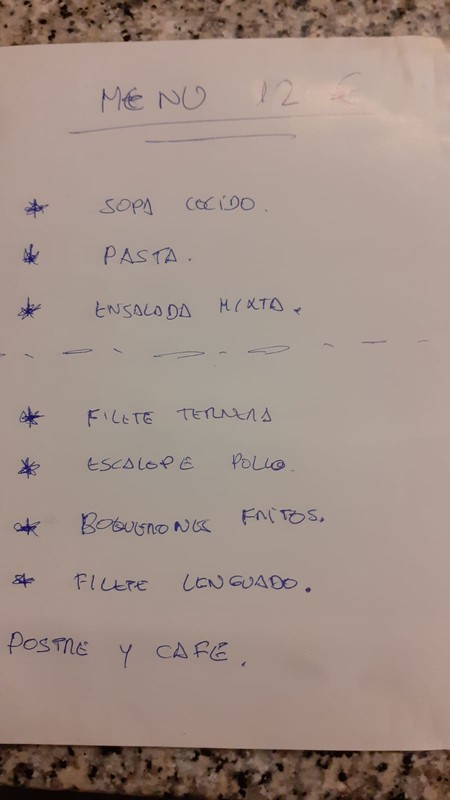 MENU 12 €
* SOPA COCIDO.
* PASTA.
* ENSALADA MIXTA.
* FILETE TERNERA
* ESCALOPE POLLO.
* BOQUERONES FRITOS.
* FILETE LENGUADO.
POSTRE Y CAFE.